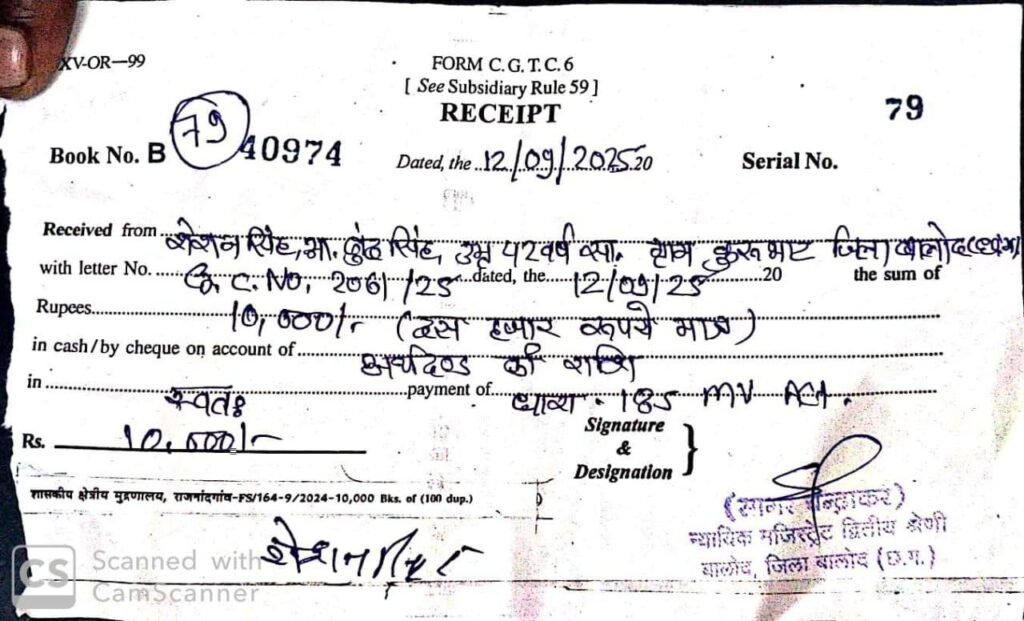 XV-OR—99
FORM C.G.T.C. 6
[ See Subsidiary Rule 59 ]
RECEIPT
79
Book No. B 79 40974 Dated, the 12/09/2025 20 Serial No.
Received from सिंह, आ. सिंह, उम्र 42 वर्ष सा. ग्राम जिला बालोद (छ.ग.)
with letter No. C. No. 2061/25 dated, the 12/09/25 20 the sum of
Rupees 10,000/- (दस हजार रूपये मात्र)
in cash/by cheque on account of अर्थदण्ड की राशि
in स्वतः payment of धारा. 185 MV Act.
Rs. 10,000/-
Signature
&
Designation
शासकीय क्षेत्रीय मुद्रणालय, राजनांदगांव-FS/164-9/2024-10,000 Bks. of (100 dup.)
(सागर चन्द्राकर)
न्यायिक मजिस्ट्रेट द्वितीय श्रेणी
बालोद, जिला बालोद (छ.ग.)
CS Scanned with
CamScanner